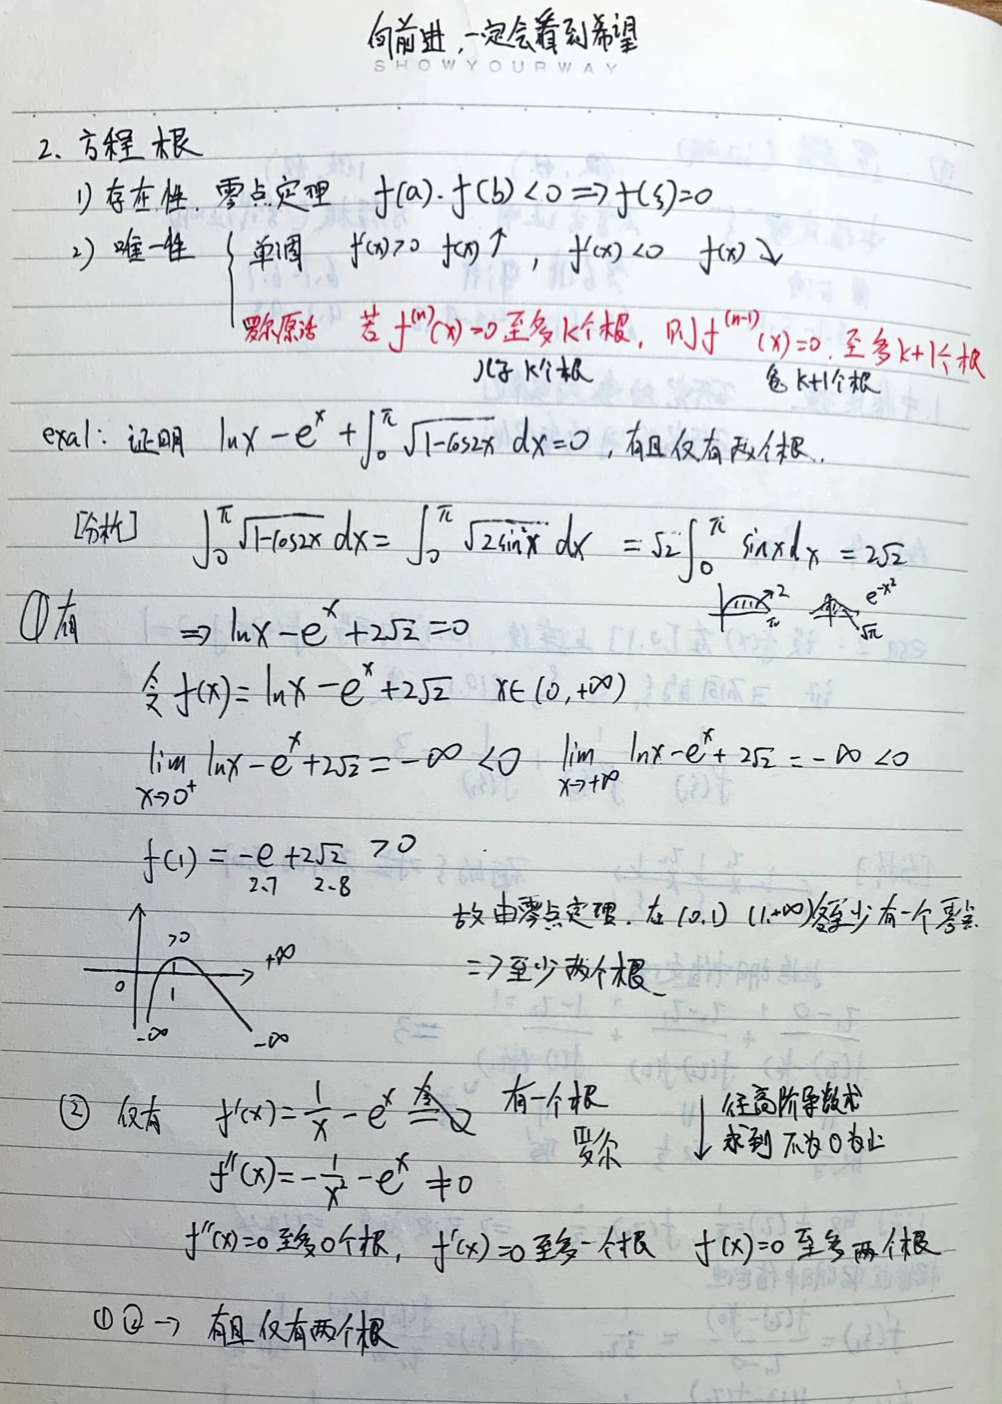 向前进，一定会看到希望
SHOWYOURWAY
2、方程根
1) 存在性. 零点定理 f(a)·f(b)<0 => f(ξ)=0
2) 唯一性 { 单调 f'(x)>0 f(x)↑, f'(x)<0 f(x)↘
罗尔原话 若f⁽ⁿ⁾(x)=0至多K个根, 则f⁽ⁿ⁻¹⁾(x)=0. 至多k+1个根
儿子 K个根 爸 k+1个根
exa1: 证明 lnx-eˣ+∫₀^π √(1-cos2x) dx=0, 有且仅有两个根.
[分析] ∫₀^π √(1-cos2x) dx = ∫₀^π √(2sin²x) dx = √2∫₀^π sinxdx = 2√2
2 π e^(-x²) √π
①有 => lnx-eˣ+2√2=0
令 f(x)=lnx-eˣ+2√2 x∈(0,+∞)
lim x→0⁺ lnx-eˣ+2√2=-∞<0 lim x→+∞ lnx-eˣ+2√2=-∞<0
f(1)=-e+2√2>0
2.7 2.8
故由零点定理. 在(0,1) (1,+∞)各至少有一个零点
=>至少两个根
>0 +∞
0 1
-∞ -∞
② 仅有 f'(x)=1/x-eˣ 有一个根
罗尔
↓ 往高阶导数求
求到不为0为止
f''(x)=-1/x²-eˣ≠0
f''(x)=0至多0个根, f'(x)=0至多一个根 f(x)=0至多两个根
①②→ 有且仅有两个根